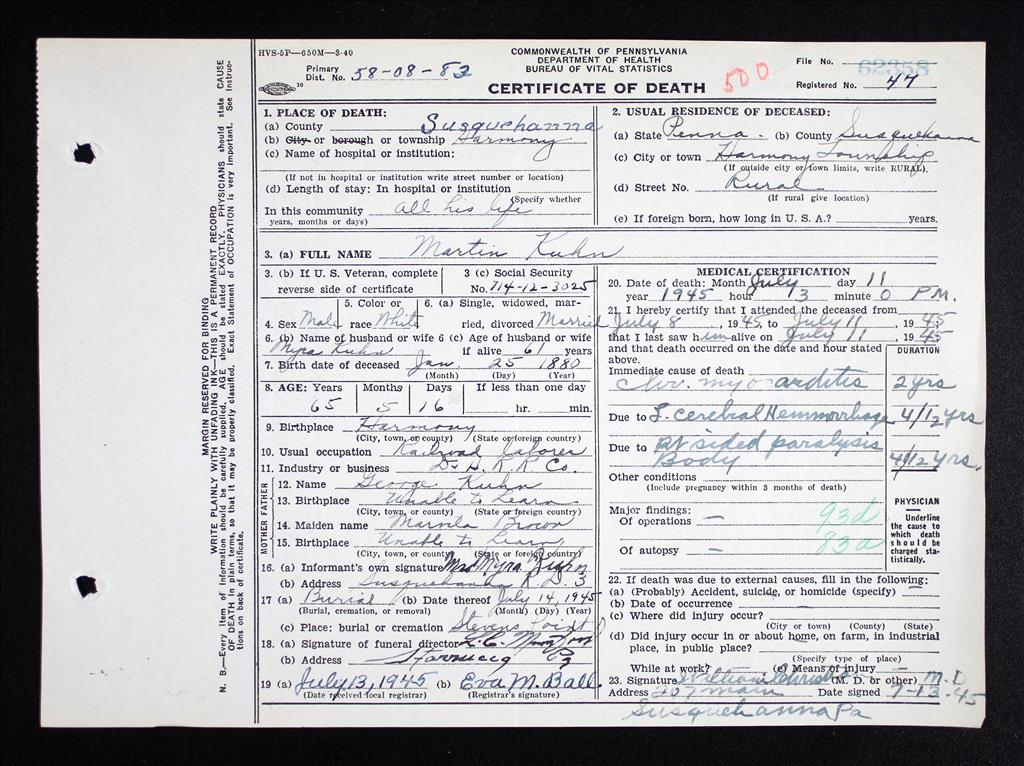 HVS-5P—650M—3-40
COMMONWEALTH OF PENNSYLVANIA
DEPARTMENT OF HEALTH
BUREAU OF VITAL STATISTICS
CERTIFICATE OF DEATH
Primary Dist. No. 58-08-83
500
File No. 62358
Registered No. 47
MARGIN RESERVED FOR BINDING
WRITE PLAINLY WITH UNFADING INK—THIS IS A PERMANENT RECORD
N. B.—Every item of Information should be carefully supplied. AGE should be stated EXACTLY. PHYSICIANS should state CAUSE
OF DEATH in plain terms, so that it may be properly classified. Exact Statement of OCCUPATION is very important. See Instruc-
tions on back of certificate.
1. PLACE OF DEATH:
(a) County Susquehanna
(b) City or borough or township Harmony
(c) Name of hospital or institution:
(If not in hospital or institution write street number or location)
(d) Length of stay: In hospital or institution
(Specify whether
In this community all his life
years, months or days)
2. USUAL RESIDENCE OF DECEASED:
(a) State Penna. (b) County Susquehanna
(c) City or town Harmony Township
(If outside city or town limits, write RURAL)
(d) Street No. Rural
(If rural give location)
(e) If foreign born, how long in U. S. A.? years.
3. (a) FULL NAME Martin Kuhn
3. (b) If U. S. Veteran, complete
reverse side of certificate
3 (c) Social Security
No. 714-12-3025
4. Sex Male
5. Color or
race White
6. (a) Single, widowed, mar-
ried, divorced Married
6. (b) Name of husband or wife
Myra Kuhn
6 (c) Age of husband or wife
if alive 61 years
7. Birth date of deceased Jan. 25 1880
(Month) (Day) (Year)
8. AGE: Years Months Days If less than one day
65 5 16 hr. min.
9. Birthplace Harmony
(City, town, or county) (State or foreign country)
10. Usual occupation Railroad laborer
11. Industry or business D & H. R.R Co.
FATHER
12. Name George Kuhn
13. Birthplace Unable to Learn
(City, town, or county) (State or foreign country)
MOTHER
14. Maiden name Brown
15. Birthplace Unable to Learn
(City, town, or county) (State or foreign country)
16. (a) Informant's own signature Mrs Myra
(b) Address Susquehanna R. D. 3
17 (a) Burial (b) Date thereof July 14, 1945
(Burial, cremation, or removal) (Month) (Day) (Year)
(c) Place: burial or cremation Stevens Point
18. (a) Signature of funeral director
(b) Address Starrucca Pa
19 (a) July 13, 1945 (b) Eva M. Ball.
(Date received local registrar) (Registrar's signature)
MEDICAL CERTIFICATION
20. Date of death: Month July day 11
year 1945 hour 3 minute 0 PM.
21. I hereby certify that I attended the deceased from
July 8, 1945, to July 11, 1945
that I last saw him alive on July 11, 1945
and that death occurred on the date and hour stated
above.
DURATION
Immediate cause of death
Chr. myocarditis 2 yrs
Due to L. cerebral Hemmorrhage 4/12 yrs
Due to Rt sided paralysis
Body 4/12 yrs.
Other conditions
(Include pregnancy within 3 months of death)
Major findings:
Of operations — 93d
Of autopsy — 83a
PHYSICIAN
Underline
the cause to
which death
should be
charged sta-
tistically.
22. If death was due to external causes, fill in the following:
(a) (Probably) Accident, suicide, or homicide (specify)
(b) Date of occurrence —
(c) Where did injury occur?
(City or town) (County) (State)
(d) Did injury occur in or about home, on farm, in industrial
place, in public place?
(Specify type of place)
While at work? (e) Means of injury —
23. Signature William (M. D. or other) M. D
Address 207 Main Date signed 7-13-45
Susquehanna Pa